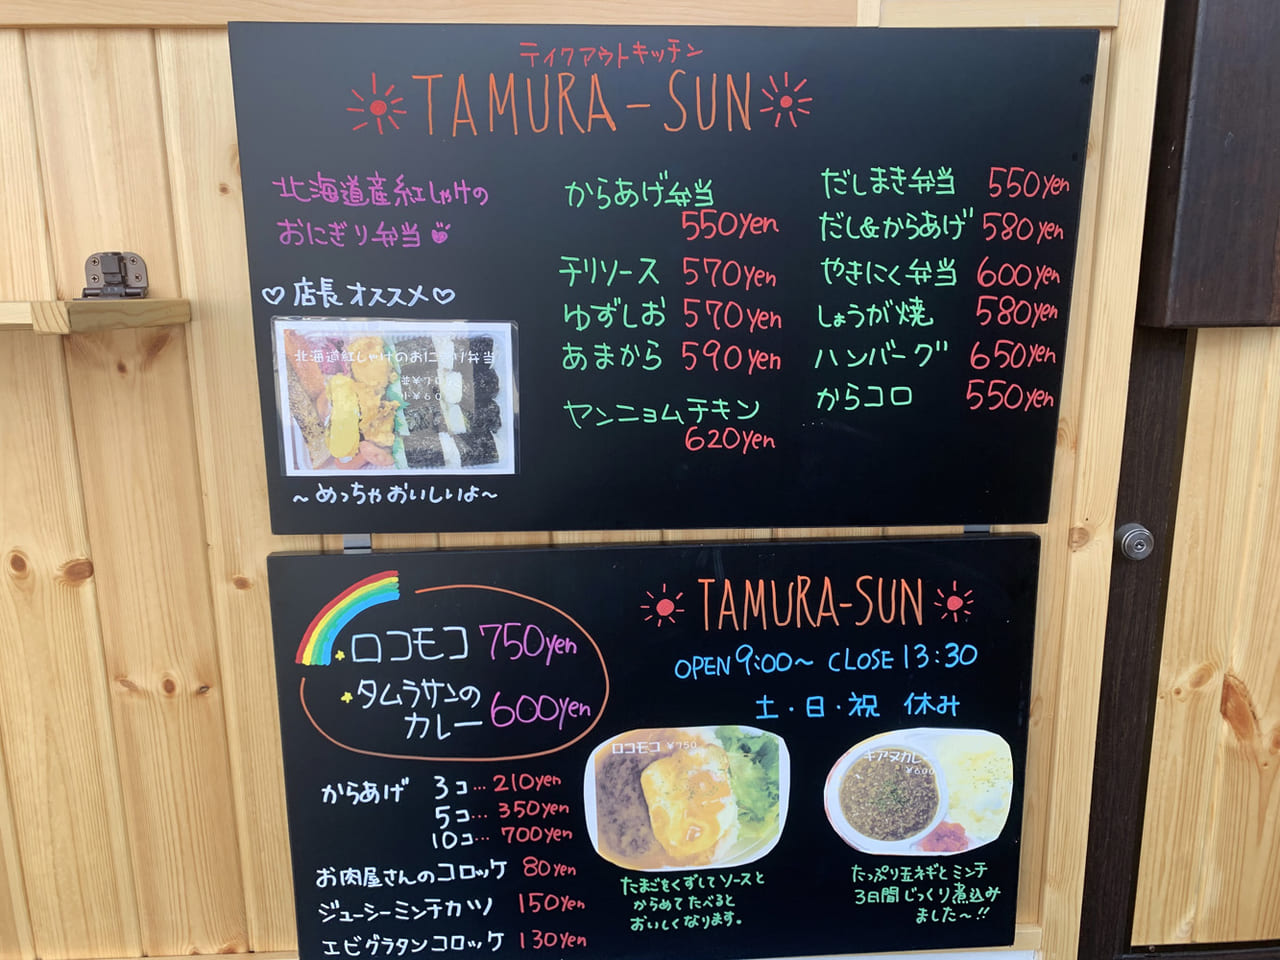 テイクアウトキッチン
TAMURA-SUN
北海道産紅しゃけの
おにぎり弁当
♡店長オススメ♡
北海道紅しゃけのおにぎり弁当
〜めっちゃおいしいよ〜
からあげ弁当
550yen
チリソース 570yen
ゆずしお 570yen
あまから 590yen
ヤンニョムチキン
620yen
だしまき弁当 550yen
だし&からあげ 580yen
やきにく弁当 600yen
しょうが焼 580yen
ハンバーグ 650yen
からコロ 550yen
ロコモコ 750yen
タムラサンの
カレー 600yen
からあげ 3コ…210yen
5コ…350yen
10コ…700yen
お肉屋さんのコロッケ 80yen
ジューシーミンチカツ 150yen
エビグラタンコロッケ 130yen
TAMURA-SUN
OPEN 9:00〜 CLOSE 13:30
土・日・祝 休み
ロコモコ ¥750
たまごをくずしてソースと
からめてたべると
おいしくなります。
キーマカレー
¥600
たっぷり玉ネギとミンチ
3日間じっくり煮込み
ました〜!!